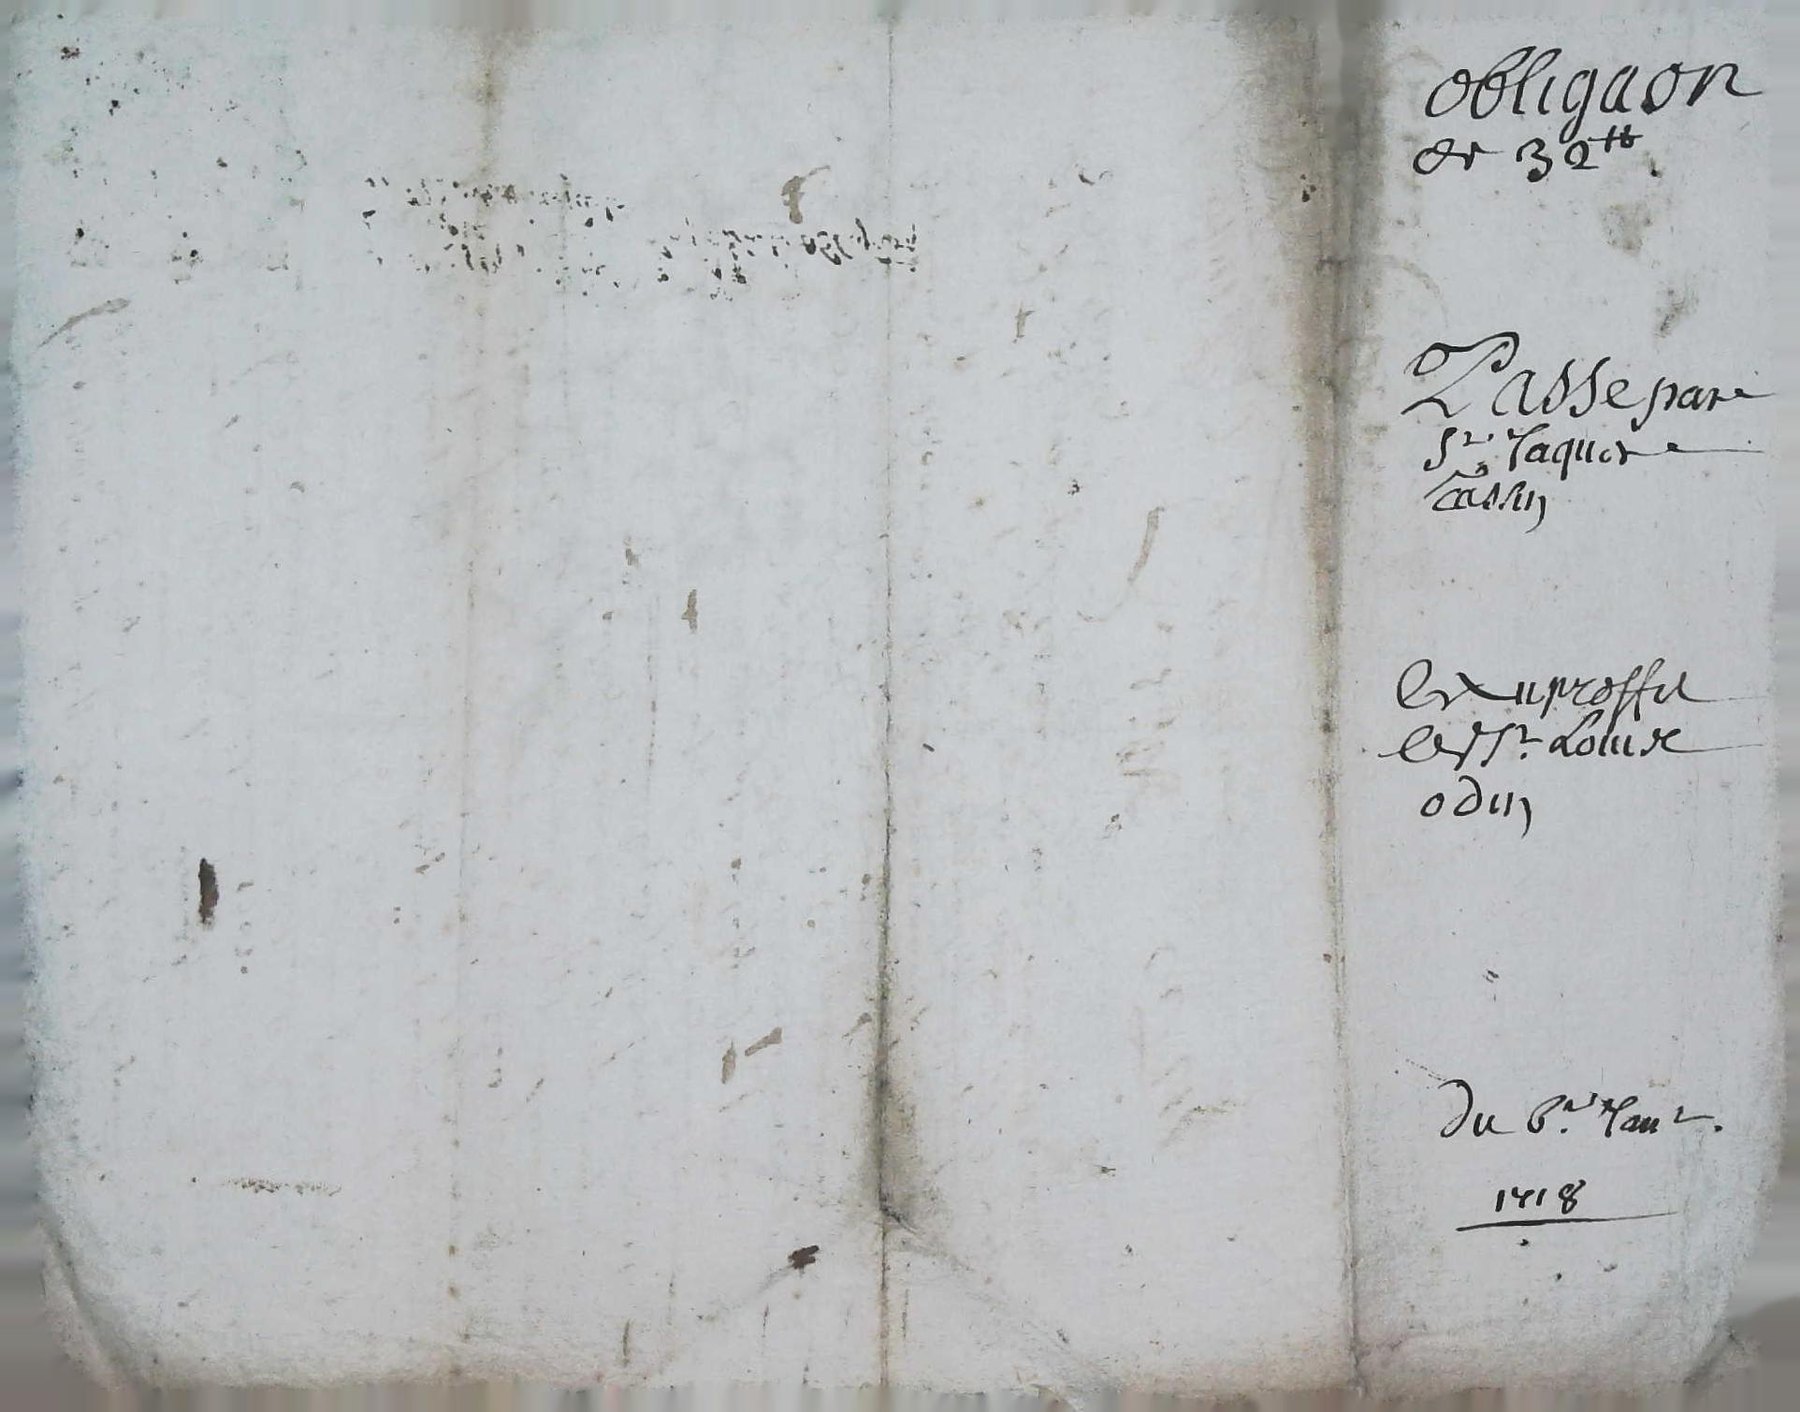 obligaon
de 32 ᵗᵗ
Passe par
Sr. Jaques
Cassin
Et au proffit
de Sr. Louis
odin
Du 6.e Janr.
1718